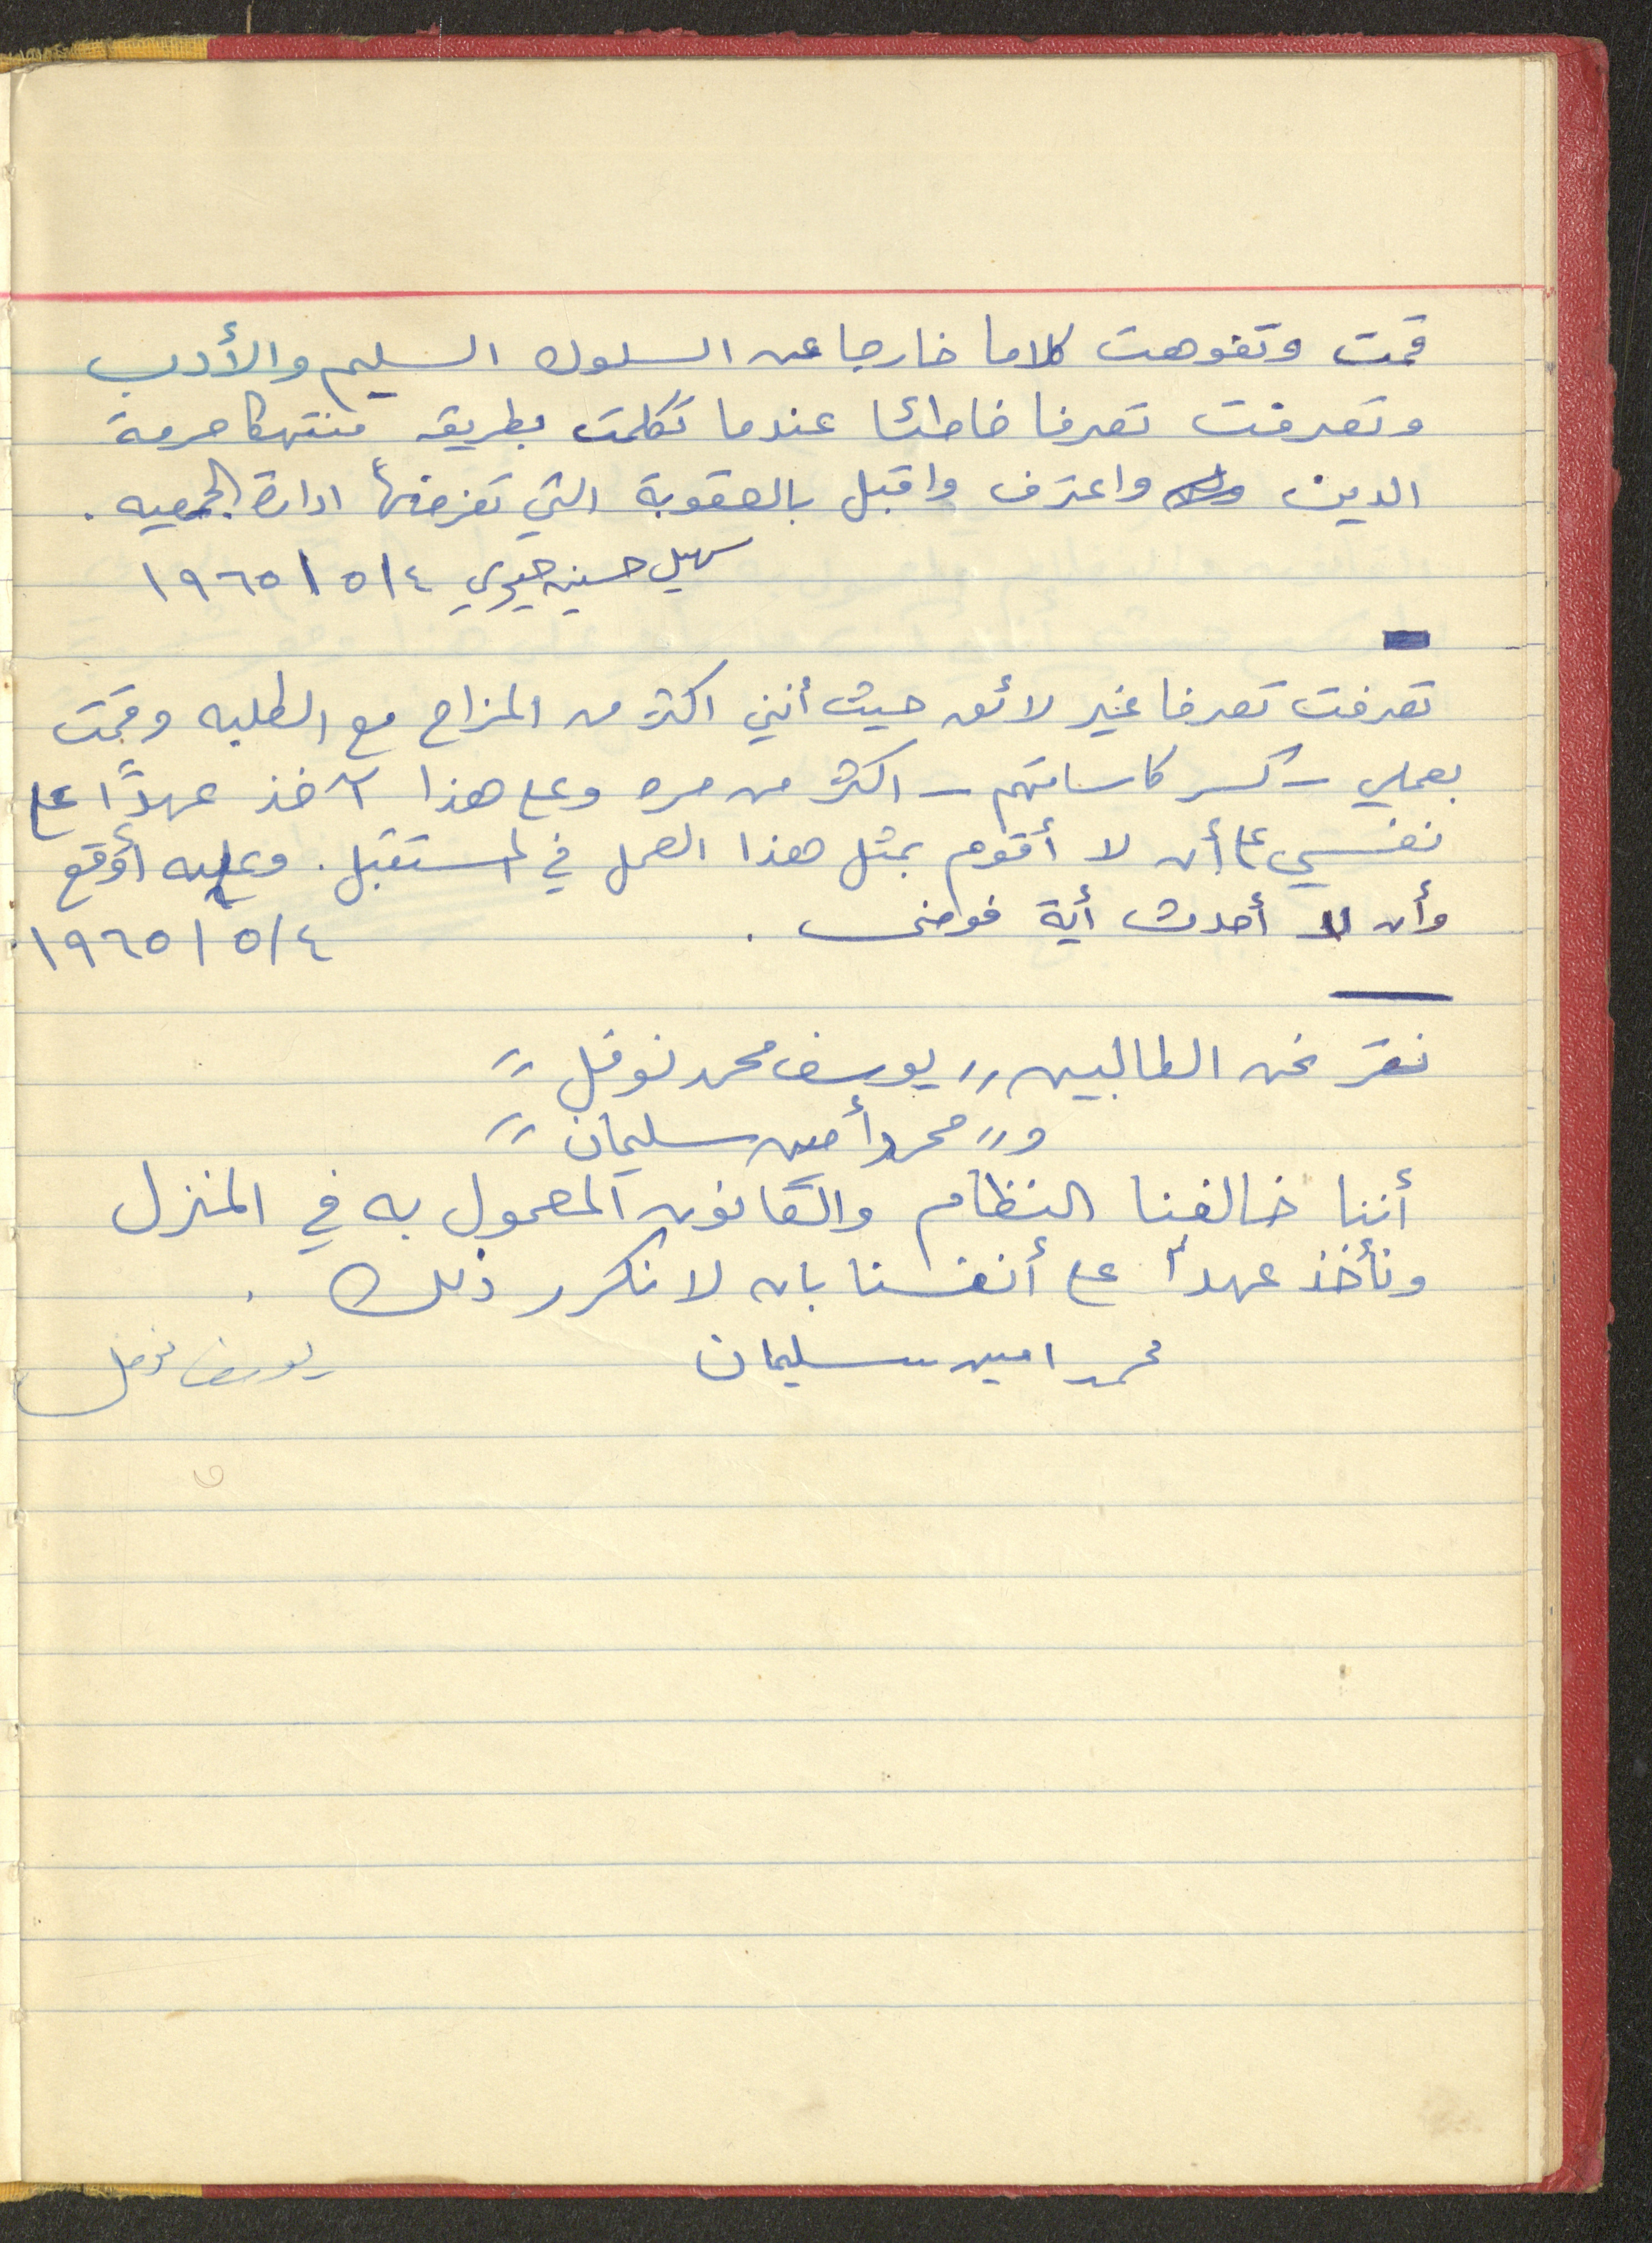 قمت وتفوهت كلاما خارجا عن السلوك السليم والأدب
وتصرفت تصرفا خاطئا عندما تكلمت بطريقه منتهكا حرمة
الدين واعترف واقبل بالعقوبة التي تفرضها ادارة الجمعيه .
سهيل حسين ٤/٥/١٩٦٥
تصرفت تصرفا غير لائق حيث أنني اكثر من المزاح مع الطلبه وقمت
بعملي - كسر كاساتهم - اكثر من مره وعلى هذا آخذ عهدًا على
نفسي على أن لا أقوم بمثل هذا العمل في المستقبل . وعليه أوقع
وأن لا أحدث أية فوضى .
٤/٥/١٩٦٥
نقر نحن الطالبين ,, يوسف محمد نوفل ,,
و ,, محمد أمين سليمان ,,
أننا خالفنا النظام والقانون المعمول به في المنزل
ونأخذ عهداً على أنفسنا بان لا نكرر ذلك .
محمد امين سليمان
يوسف نوفل